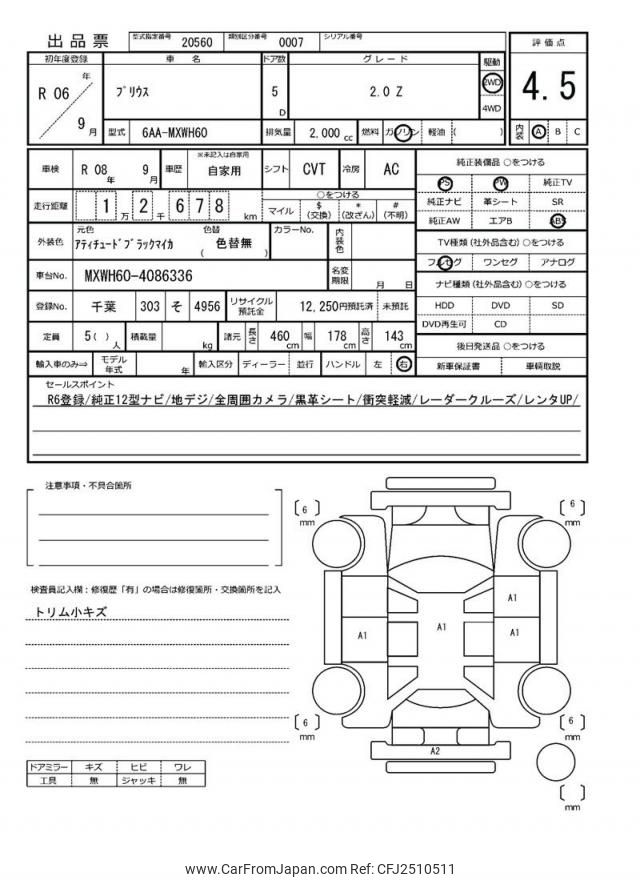 出品票 型式指定番号 20560 類別区分番号 0007 シリアル番号
初年度登録 車名 ドア数 グレード 駆動 評価点
R 06 年 9 月 プリウス 5 D 2.0 Z 2WD 4WD 4.5
型式 6AA-MXWH60 排気量 2,000 cc 燃料 ガソリン 軽油 ( ) 内装 A B C
車検 R 08 年 9 月 車歴 ※未記入は自家用 自家用 シフト CVT 冷房 AC
純正装備品 ○をつける
PS PW 純正TV
純正ナビ 革シート SR
純正AW エアB ABS
走行距離 1 万 2 千 6 7 8 km ○をつける マイル $ (交換) * (改ざん) # (不明)
外装色 元色 アティチュードブラックマイカ 色替 ( 色替無 ) カラーNo. 内装色
TV種類 (社外品含む) ○をつける
フルセグ ワンセグ アナログ
車台No. MXWH60-4086336 名変期限 月 日
ナビ種類 (社外品含む) ○をつける
HDD DVD SD
DVD再生可 CD
登録No. 千葉 303 そ 4956 リサイクル預託金 12,250円預託済 未預託
定員 5 ( ) 人 積載量 kg 諸元 長さ 460 cm 幅 178 cm 高さ 143 cm
後日発送品 ○をつける
新車保証書 車輌取説
輸入車のみ⇒ モデル年式 年 輸入区分 ディーラー 並行 ハンドル 左 右
セールスポイント
R6登録/純正12型ナビ/地デジ/全周囲カメラ/黒革シート/衝突軽減/レーダークルーズ/レンタUP/
注意事項・不具合箇所
検査員記入欄：修復歴「有」の場合は修復箇所・交換箇所を記入
トリム小キズ
ドアミラー キズ ヒビ ワレ
工具 無 ジャッキ 無
6 mm
6 mm
A1
A1
A1
A1
6 mm
6 mm
A2
mm
www.CarFromJapan.com Ref: CFJ2510511